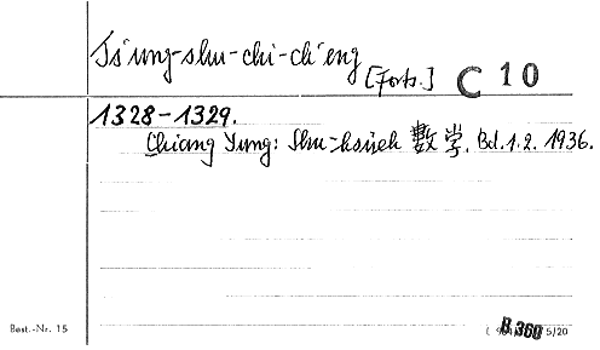 Ts'ung-shu-chi-ch'eng [Forts.] C 10
1328-1329.
Chiang Yung: Shu-hsüeh 數学. Bd.1.2. 1936.
Best.-Nr. 15 B 360 5/20